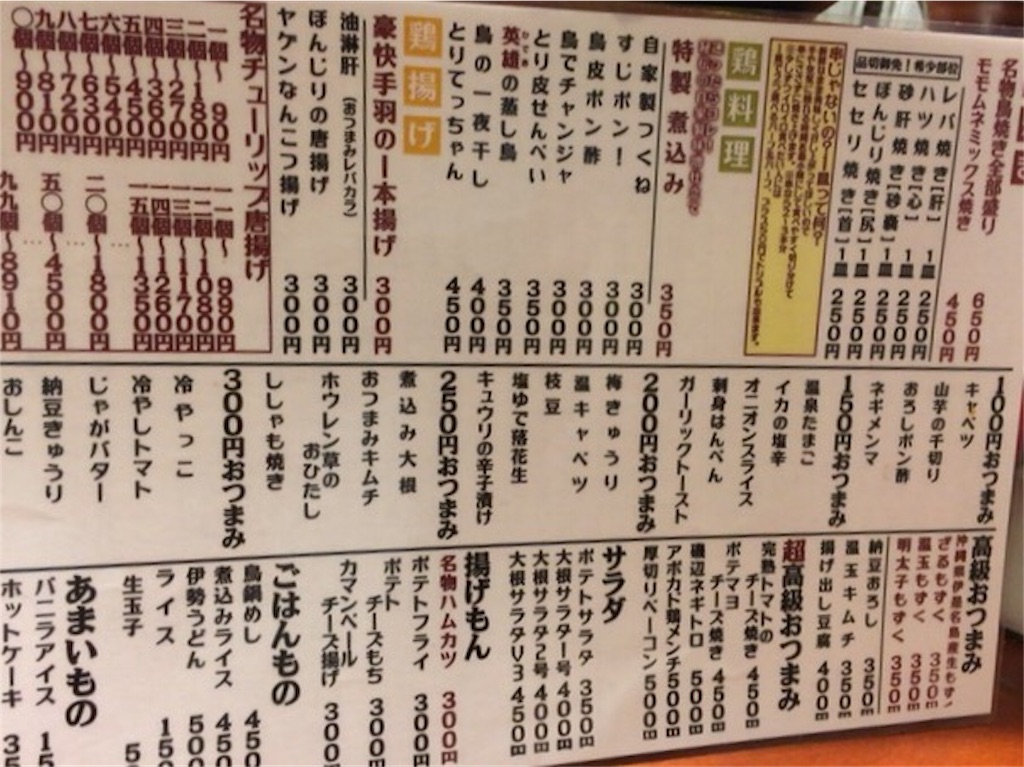 名物鳥焼き全部盛り 650円
モモムネミックス焼き 450円
品切御免!希少部位
レバ焼き[肝] 1皿 250円
ハツ焼き[心] 1皿 250円
砂肝焼き[砂嚢] 1皿 250円
ほんじり焼き[尻] 1皿 250円
セセリ焼き[首] 1皿 250円
串じゃないの?一皿って何?
鶏料理
特製煮込み 350円
自家製つくね 300円
すじポン! 300円
鳥皮ポン酢 300円
鳥でチャンジャ 300円
とり皮せんべい 350円
英雄の蒸し鳥 350円
ひでお
鳥の一夜干し 400円
とりてっちゃん 450円
鶏揚げ
豪快手羽の一本揚げ 300円
油淋肝(おつまみレバカラ) 300円
ほんじりの唐揚げ 300円
ヤゲンなんこつ揚げ 300円
名物チューリップ唐揚げ
一個〜90円
二個〜180円
三個〜270円
四個〜360円
五個〜450円
六個〜540円
七個〜630円
八個〜720円
九個〜810円
〇個〜900円
一一個〜990円
一二個〜1080円
一三個〜1170円
一四個〜1260円
一五個〜1350円
二〇個〜1800円
五〇個〜4500円
九九個〜8910円
100円おつまみ
キャベツ
山芋の千切り
おろしポン酢
ネギメンマ
150円おつまみ
温泉たまご
イカの塩辛
オニオンスライス
刺身はんぺん
ガーリックトースト
200円おつまみ
梅きゅうり
温キャベツ
枝豆
塩ゆで落花生
キュウリの辛子漬け
250円おつまみ
煮込み大根
おつまみキムチ
ホウレン草の
おひたし
ししゃも焼き
300円おつまみ
冷やっこ
冷やしトマト
じゃがバター
納豆きゅうり
おしんこ
高級おつまみ
沖縄県伊是名島産生もずく
ざるもずく 350円
温玉もずく 350円
明太子もずく 350円
納豆おろし 350円
温玉キムチ 350円
揚げ出し豆腐 400円
超高級おつまみ
完熟トマトの
チーズ焼き 450円
ポテマヨ
チーズ焼き 450円
磯辺ネギトロ 500円
アボカド鶏メンチ 500円
厚切りベーコン 500円
サラダ
ポテトサラダ 350円
大根サラダ1号 400円
大根サラダ2号 400円
大根サラダV3 450円
揚げもん
名物ハムカツ 300円
ポテトフライ 300円
ポテト
チーズもち 300円
カマンベール
チーズ揚げ 300
ごはんもの
鳥鍋めし 450
煮込みライス 450
伊勢うどん 500
ライス 150
生玉子 5
あまいもの
バニラアイス 15
ホットケーキ 35